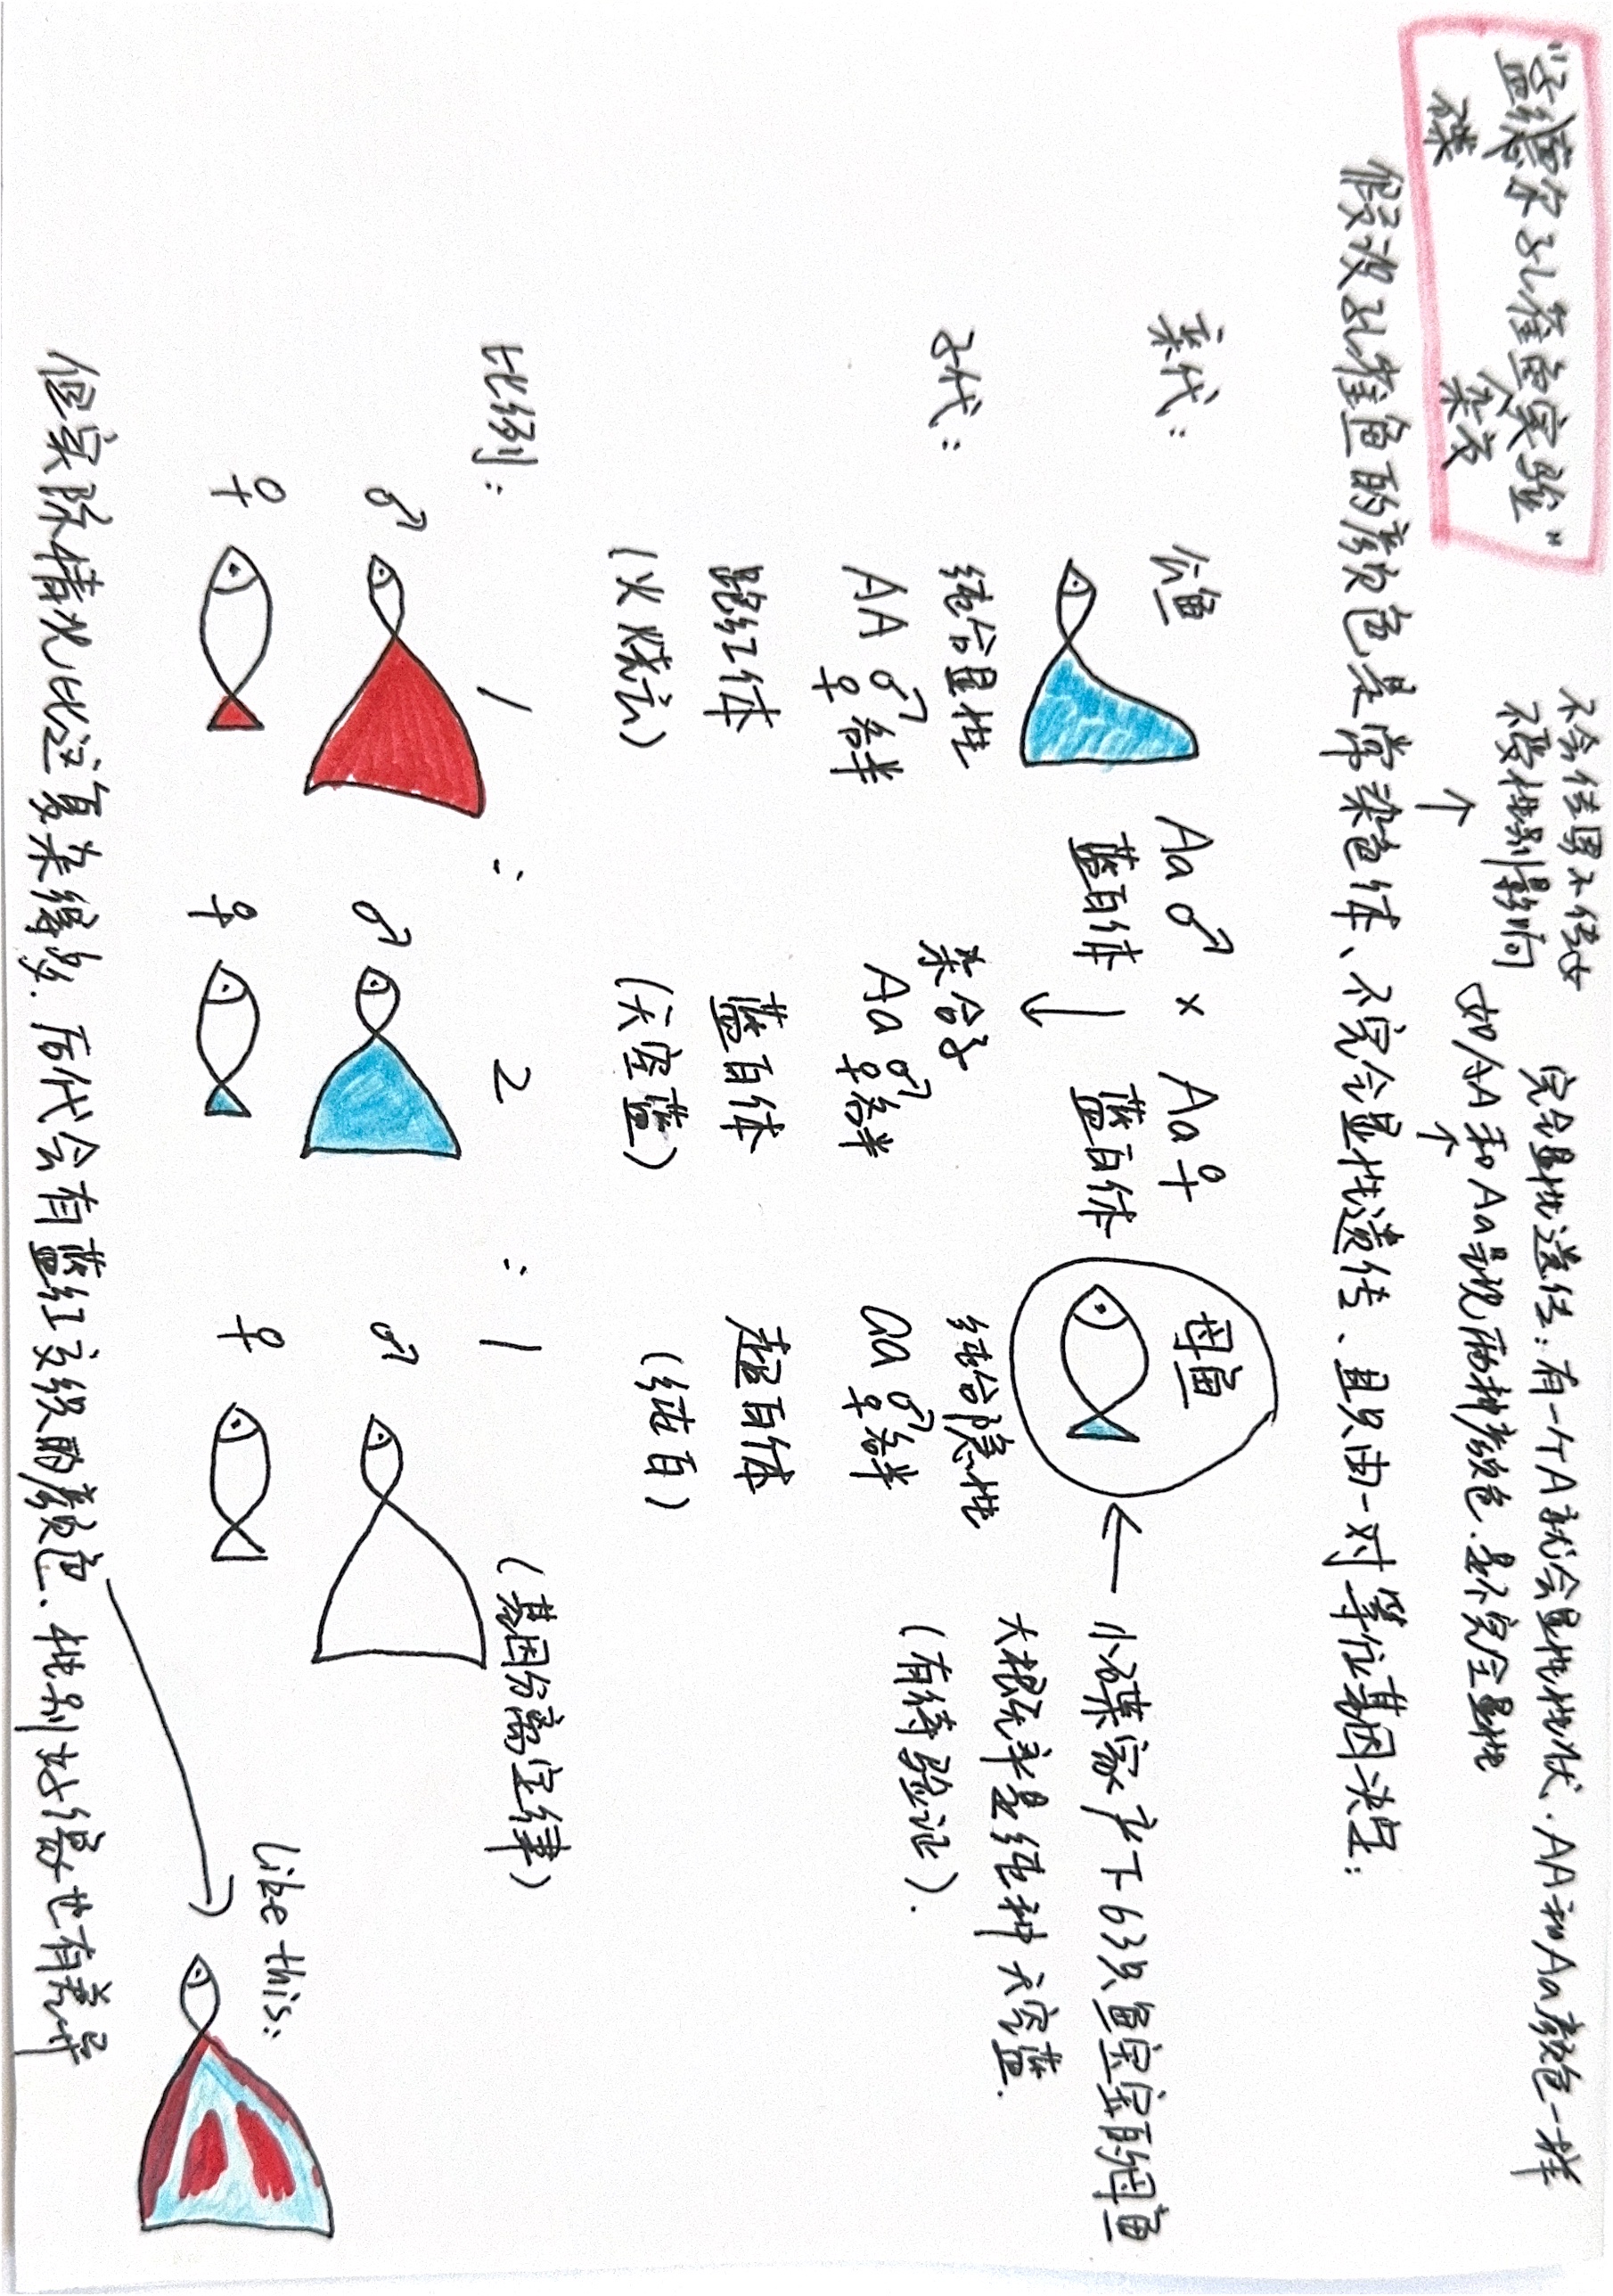 "孟德尔孔雀鱼实验"
碟 杂交
不会传男不传女
不受性别影响
完全显性遗传：有一个A就会显性性状．AA和Aa颜色一样
如AA和Aa呈现两种颜色．是不完全显性
假设孔雀鱼的颜色是常染色体、不完全显性遗传、且只由一对等位基因决定：
亲代： 公鱼 Aa♂ × Aa♀ 母鱼
蓝白体 ↓ 蓝白体
← 小碟家产下63只鱼宝宝的母鱼
大概率是纯种天空蓝．
（有待验证）．
子代： 纯合显性 杂合子 纯合隐性
AA ♂♀各半 Aa ♂♀各半 aa ♂♀各半
超红体 蓝白体 超白体
（火烧云） （天空蓝） （纯白）
比例： 1 : 2 : 1 （基因分离定律）
♂ ♂ ♂
♀ ♀ ♀
like this:
但实际情况比这复杂得多．后代会有蓝红交织的颜色．性别好像也有差异